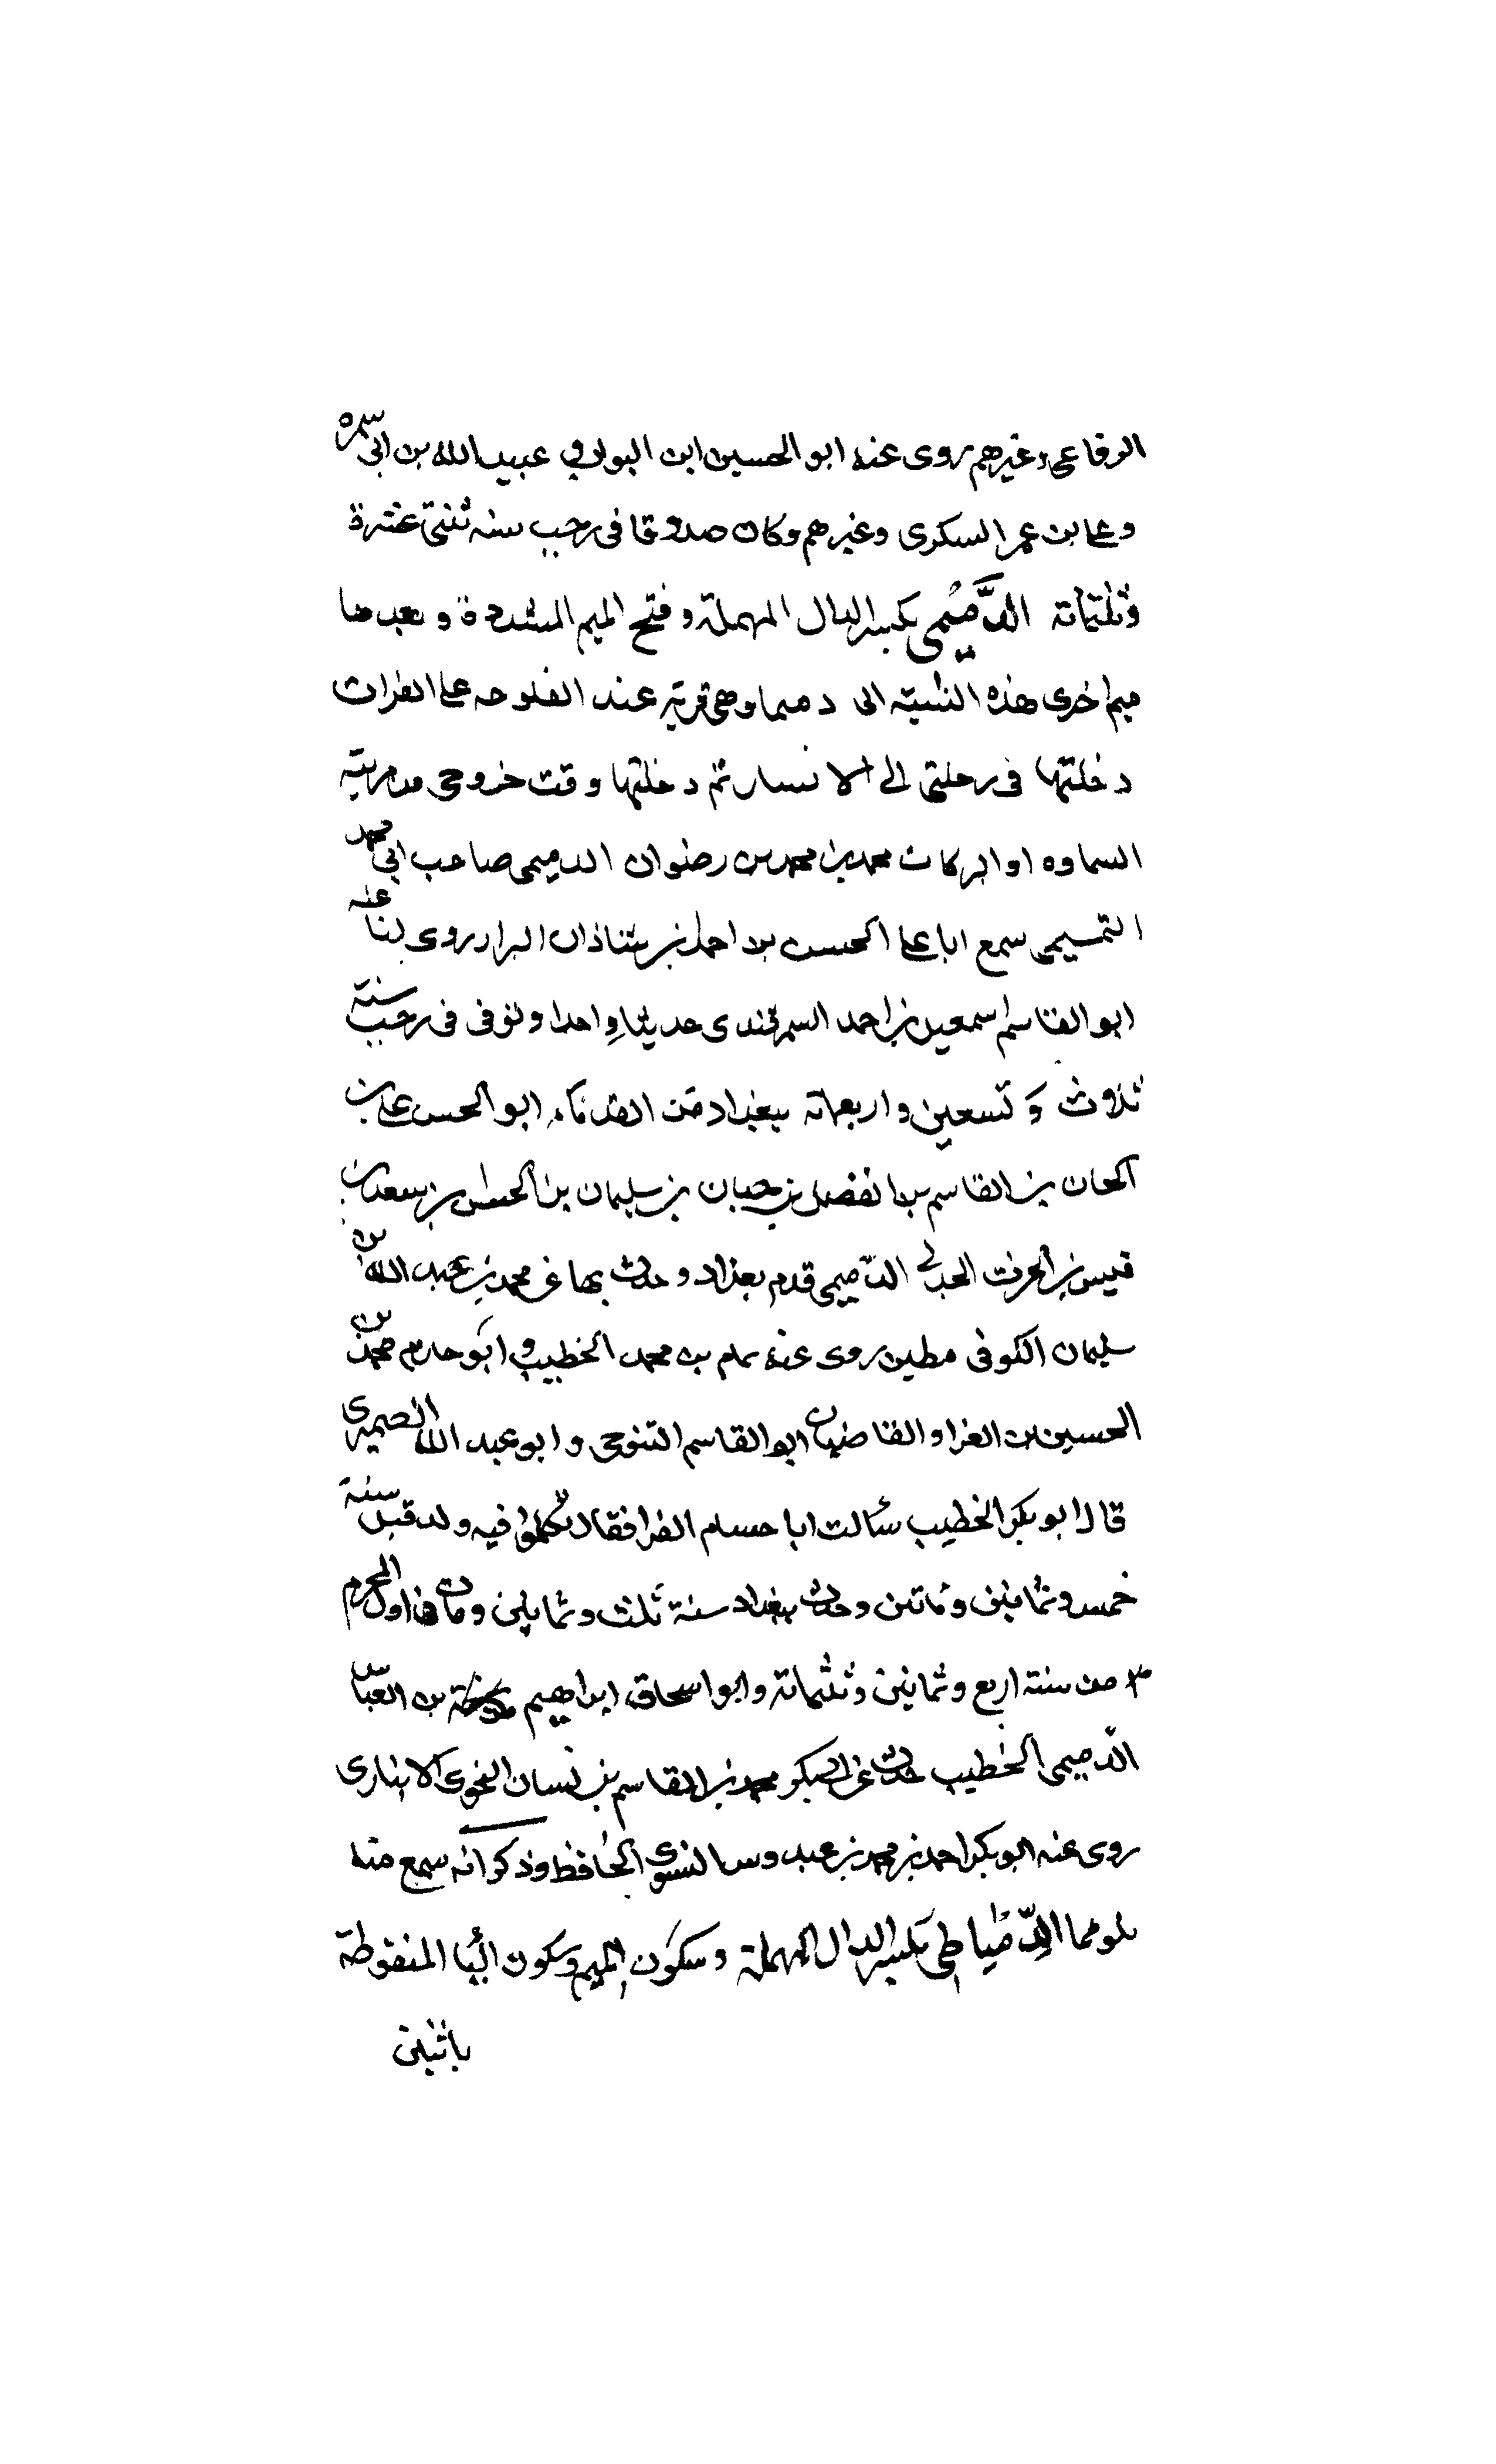 الرفاعى وغيرهم روى عنه ابو الحسين ابن البواب وعبيد الله بن ابى سمرة
وعلى بن عمر السكرى وغيرهم وكان صدوقا فى رجب سنه ثنتى عشرة
وثلثمائة الدِّمَّمِى بكسر الدال المهملة وفتح الميم المشددة وبعدها
ميم اخرى هذه النسبة الى دمما وهى قرية عند الفلوحه على الفرات
دخلتها فى رحلتى الى الانبار ثم دخلتها وقت خروجى من برية
السماوه ابو البركات محمد بن محمد بن رضوان الدممى صاحب ابى محمد
التميمى سمع ابا على الحسن بن احمد بن شاذان البزار روى لنا عنه
ابو القاسم اسمعيل بن احمد السمرقندى حديثا واحدا وتوفى فى رجب سنة
ثلاث وتسعين واربعمائة ببغداد من القدماء ابو الحسن على بن
حسان بن القاسم بن الفضل بن حسان بن سليمان بن الحسن بن سعد بن
قيس بن الحرث الجدلى الدممى قدم بغداد وحدث بها عن محمد بن عبد الله بن
سليمان الكوفى مطين روى عنه تمام بن محمد الخطيب وابو حازم محمد بن
الحسين بن الفراو القاضيان ابو القاسم التنوخى وابو عبد الله الصيمرى
قال ابو بكر الخطيب سألت ابا حسام الفرا فقال تكلموا فيه ولد قبل سنة
خمس وثمانين ومائتين وحدث ببغداد سنة ثلث وثمانين ومات فى اول المحرم
من سنة اربع وثمانين وثلثمائة وابو اسحاق ابراهيم بن العباس
الدممى الخطيب حدث عن ابى بكر محمد بن القاسم بن بسان النحوى الانبارى
روى عنه ابو بكر احمد بن محمد بن عبدوسا النسوى الحافظ وذكر انه سمع منه
بدمما الدِّمياطى بكسر الدال المهملة وسكون الميم وسكون اليا المنقوطة
باثنين